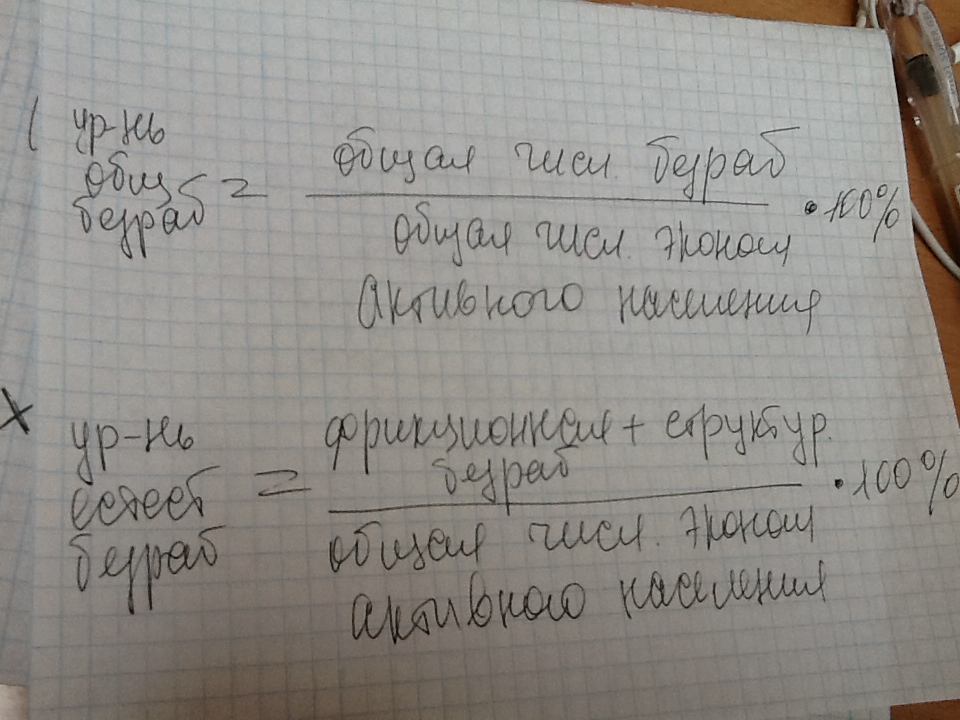 ур-нь
общ
безраб =
общая числ. безраб
общая числ. эконом
активного населения
• 100%
ур-нь
естест
безраб =
фрикционная + структур.
безраб
общая числ. эконом
активного населения
• 100%